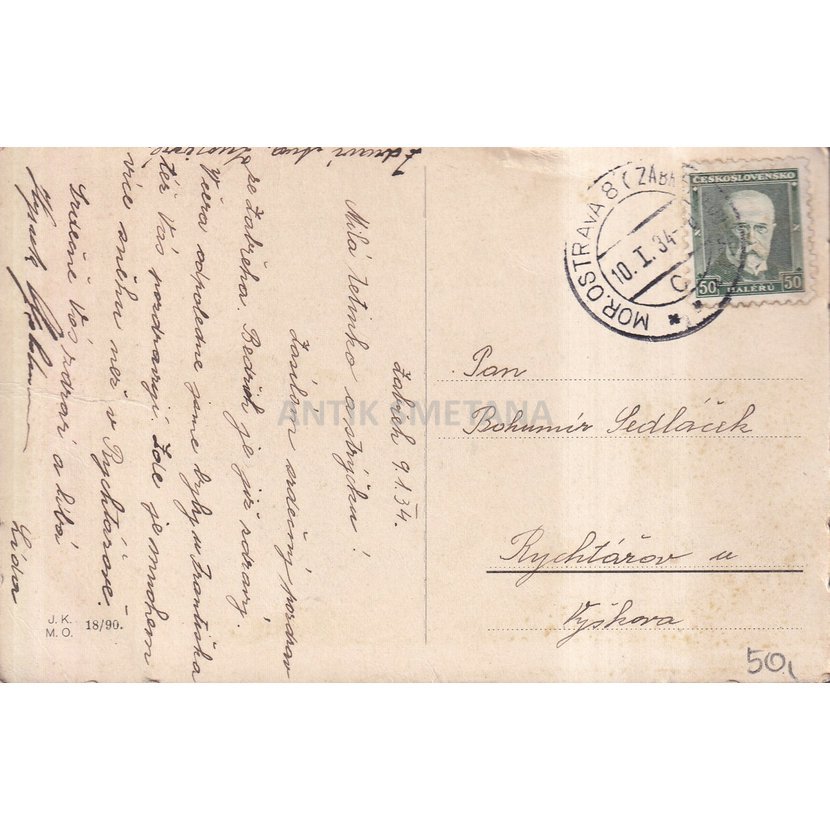 Zábřeh 9.I.34.
Milá tetinko a strýčku!
Zasílám srdečný pozdrav
ze Zábřeha. Bedřich je již zdravý.
Včera odpoledne jsme byly u Františka
též Vás pozdravují. Zde je mnohem
více sněhu než v Rychtářově.
Srdečně Vás zdraví a líbá
Lida
Zdraví
J. K.
M. O.
18/90.
MOR. OSTRAVA 8 (ZÁBŘ
10. I. 34
ČESKOSLOVENSKO
50 50
HALÉŘŮ
Pan
Bohumír Sedláček
Rychtářov u
Vyškova
50,
ANTIK SMETANA